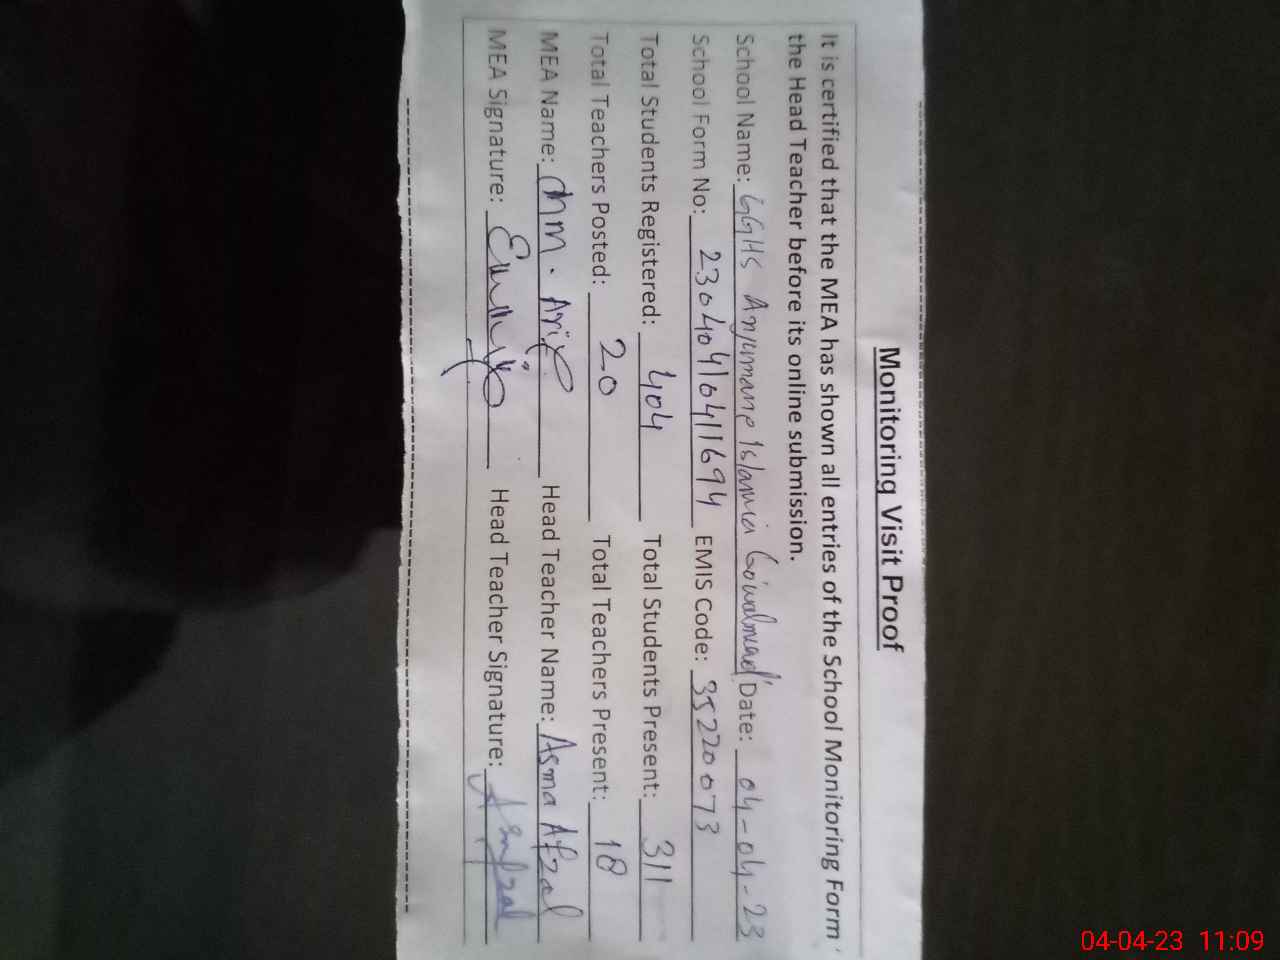 Monitoring Visit Proof
It is certified that the MEA has shown all entries of the School Monitoring Form
the Head Teacher before its online submission.
School Name: GGHS Anjumane Islamia Gowalmandi Date: 04-04-23
School Form No: 23040416411694 EMIS Code: 35220073
Total Students Registered: 404 Total Students Present: 311
Total Teachers Posted: 20 Total Teachers Present: 18
MEA Name: M. Arif Head Teacher Name: Asma Afzal
MEA Signature: Head Teacher Signature: Asmafzal
04-04-23 11:09